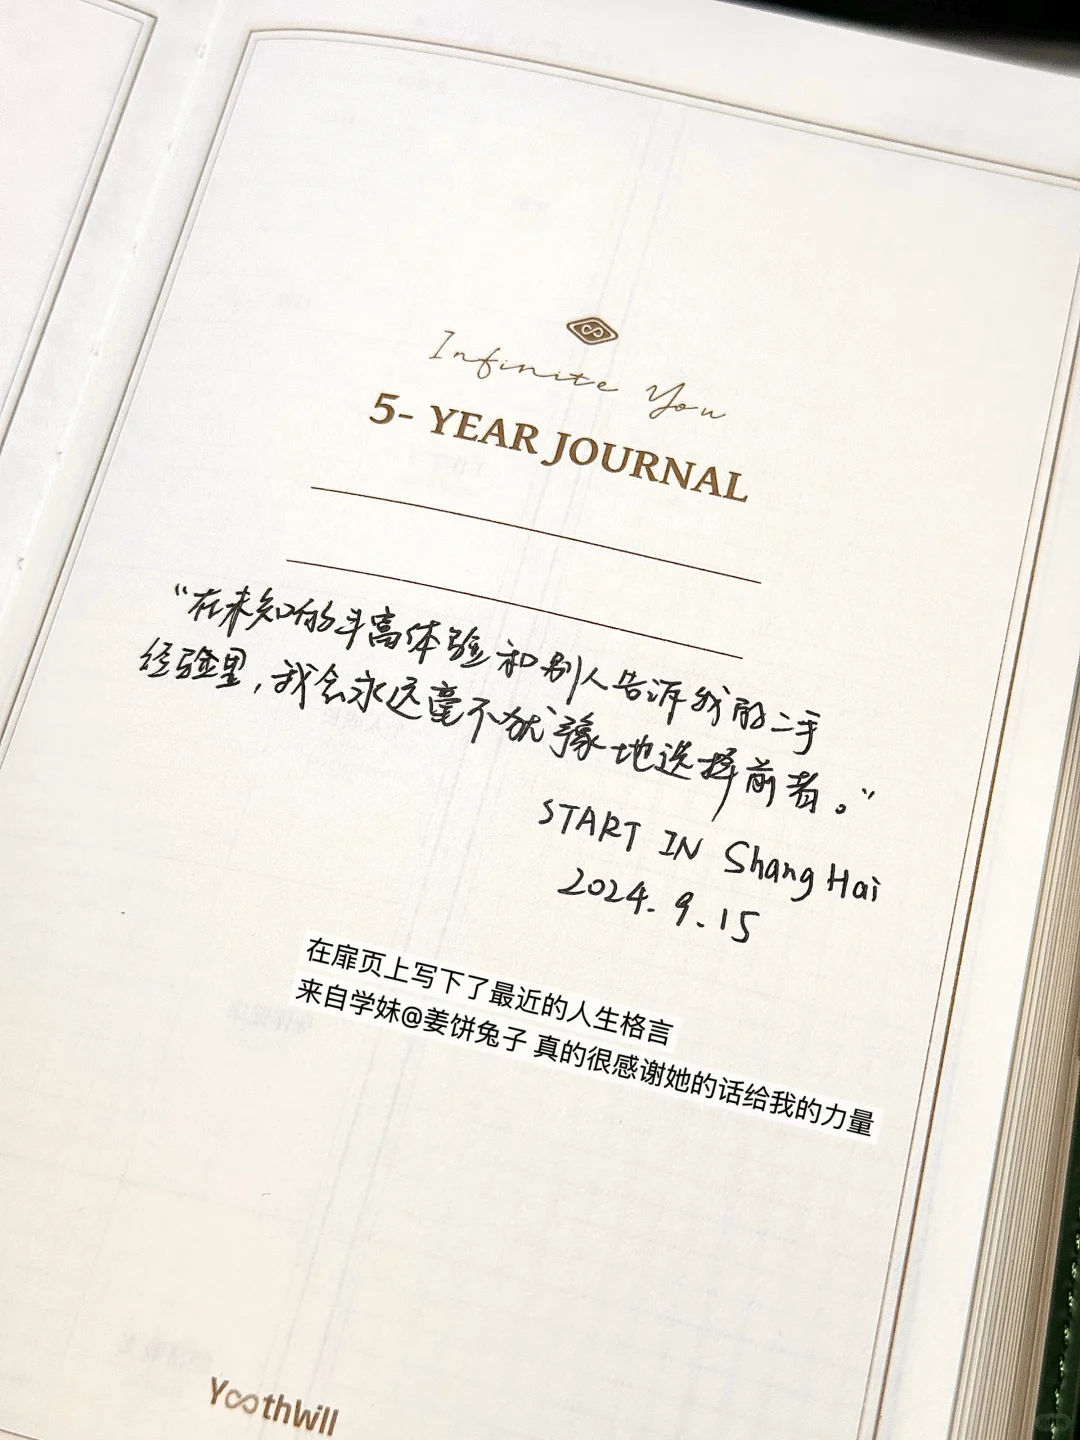 Infinite You
5- YEAR JOURNAL
“在未知的斗高体验和别人告诉我的二手
经验里，我会永远毫不犹豫地选择前者。”
START IN Shang Hai
2024. 9. 15
在扉页上写下了最近的人生格言
来自学妹@姜饼兔子 真的很感谢她的话给我的力量
YouthWill